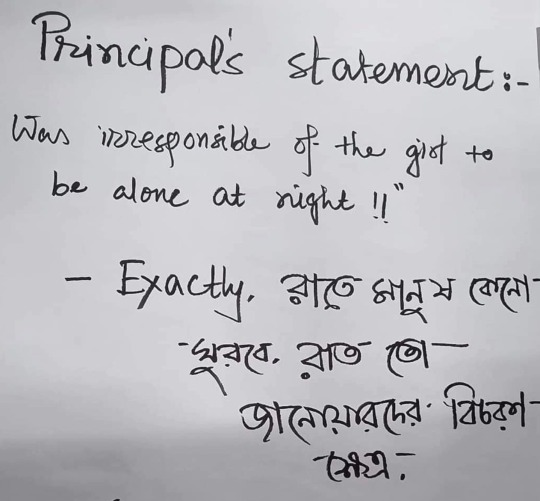 Principal's statement:-
Was irresponsible of the girl to
be alone at night !!"
- Exactly. রাতে মানুষ কেনো
ঘুরবে. রাত তো
জানোয়ারদের বিচরণ
ক্ষেত্র.